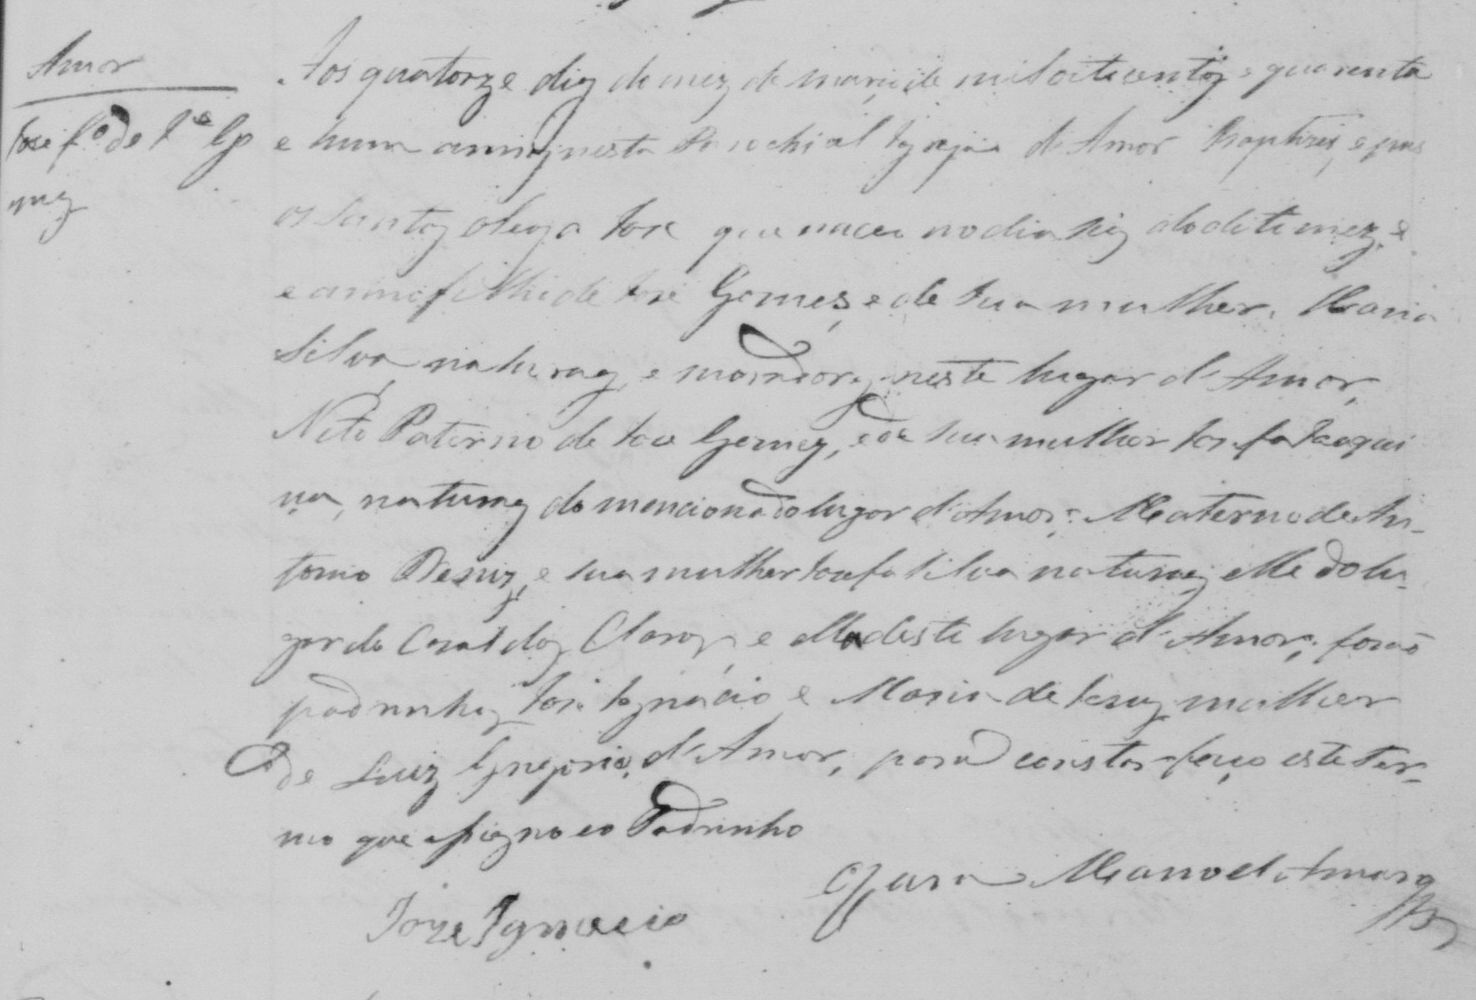 Amor
José f.º de J.e Go
mez
Aos quatorze diaz do mez de março de mil oito centoz e quarenta
e hum annoz nesta Parochial Igreja de Amor Baptizei, e puz
os Santoz oleoz a José que naceo no dia seiz do dito mez, e
e anno filho de José Gomes, e de sua mulher Maria
Silva naturaz, e moradorez neste lugar d'Amor,
Neto Paterno de Joze Gomez, e de sua mulher Josefa Joaqui
na, naturaz do mencionado lugar d'Amor: Materno de An-
tonio Deniz, e sua mulher Josefa Silva naturaz elle do lu-
gar do Casal doz Claroz, e ella deste lugar d'Amor; forão
padrinhoz José Ignacio e Maria de Jesuz mulher
de Luiz Gregorio, d'Amor, para constar faço este ter-
mo que assigno e o Padrinho
O Cura Manoel
Joze Ignacio